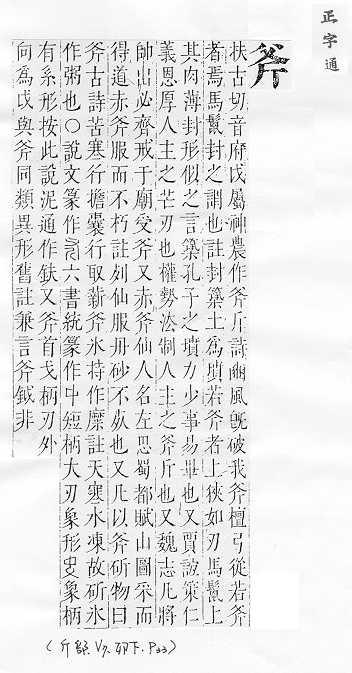 正字通
斧
扶古切音府戉屬神農作斧斤詩豳風旣破我斧檀弓從若斧
者焉馬鬛封之謂也註封築土爲壟若斧者上狹如刃馬鬛上
其肉薄封形似之言築孔子之墳力少事易畢也又賈誼策仁
義恩厚人主之芒刃也權勢法制人主之斧斤也又魏志凡將
帥出必齊戒于廟受斧又赤斧仙人名左思蜀都賦山圖采而
得道赤斧服而不朽註列仙服丹砂不
也又凡以斧斫物曰
斧古詩苦寒行擔囊行取薪斧氷持作糜註天寒水凍故斫氷
作粥也〇說文篆作
六書統篆作
中短柄大刃象形
象柄
有系形按此說泥通作鈇又斧首戈柄刃外
向爲戉與斧同類異形舊註兼言斧鉞非
(斤部 V7. 卯下. P33)